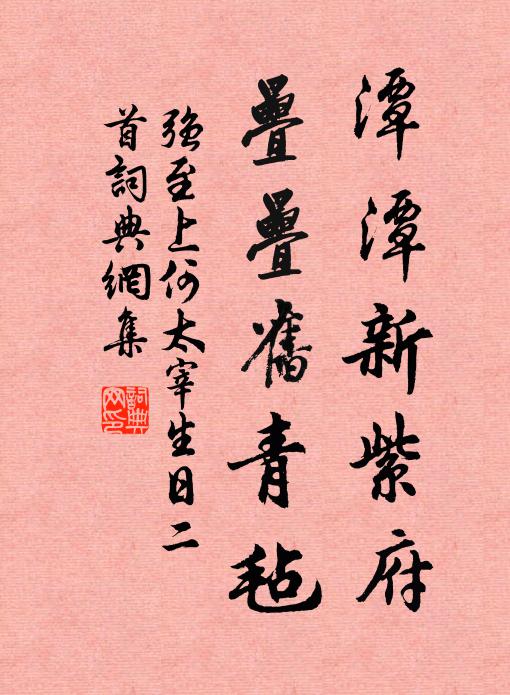 潭潭新紫府
疊疊舊青毡
強至上何太宰生日二
首詞典網集
詞典
网印